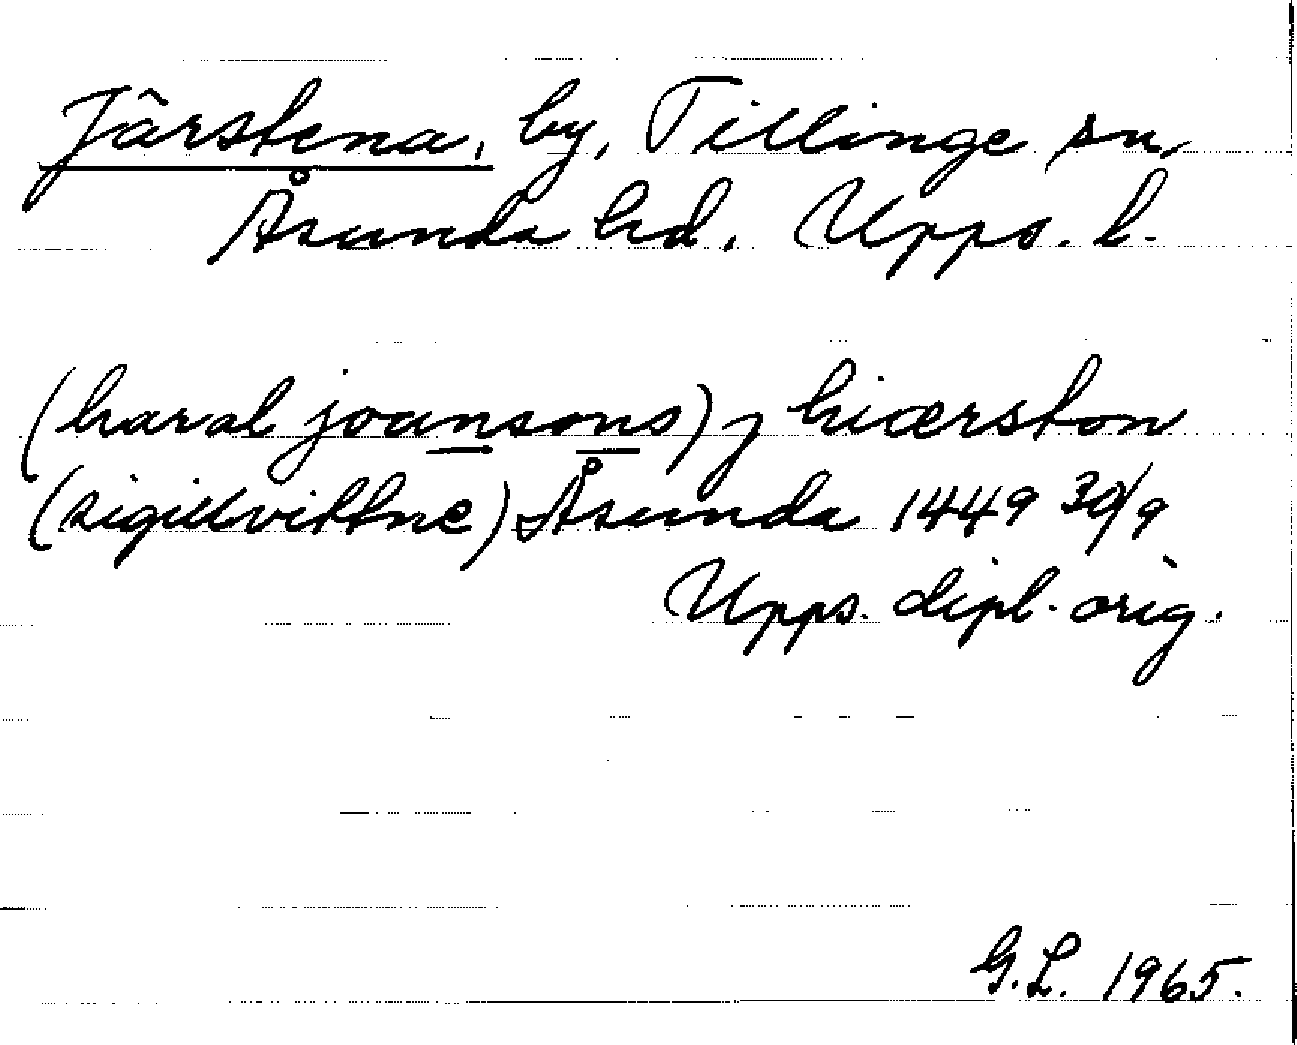 Jârstena, by, Tillinge sn,
Åsunda hd, Upps. l.
(haral joansons) j hiærston
(sigillvittne) Åsunda 1449 30/9
Upps. dipl. orig.
G.L. 1965.